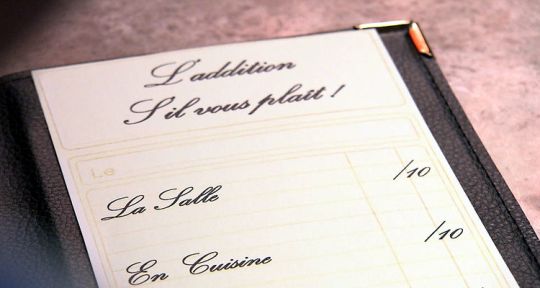 L'addition
S'il vous plaît !
Le
La Salle /10
En Cuisine /10